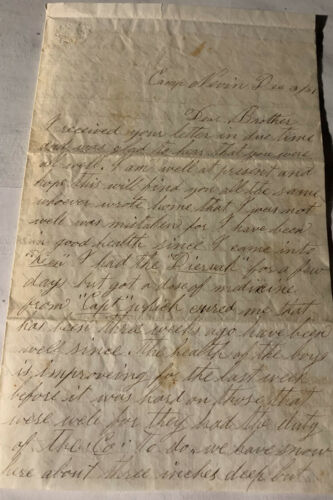 Camp Nevin Dec
Dear Brother
I received your letter in due time
and was glad to hear that you were
all well. I am well at present and
hope this will find you all the same
whoever wrote home that I was not
well was mistaken for I have been
in good health since I came into
I had the "Diereah" for a few
days but got a dose of medicine
from "Capt" which cured me that
has been three weeks ago have been
well since. The health of the boys
is improveing for the last week
before it was hard on those that
were well for they had the duty
of the "Co" to do. we have snow
here about three inches deep but